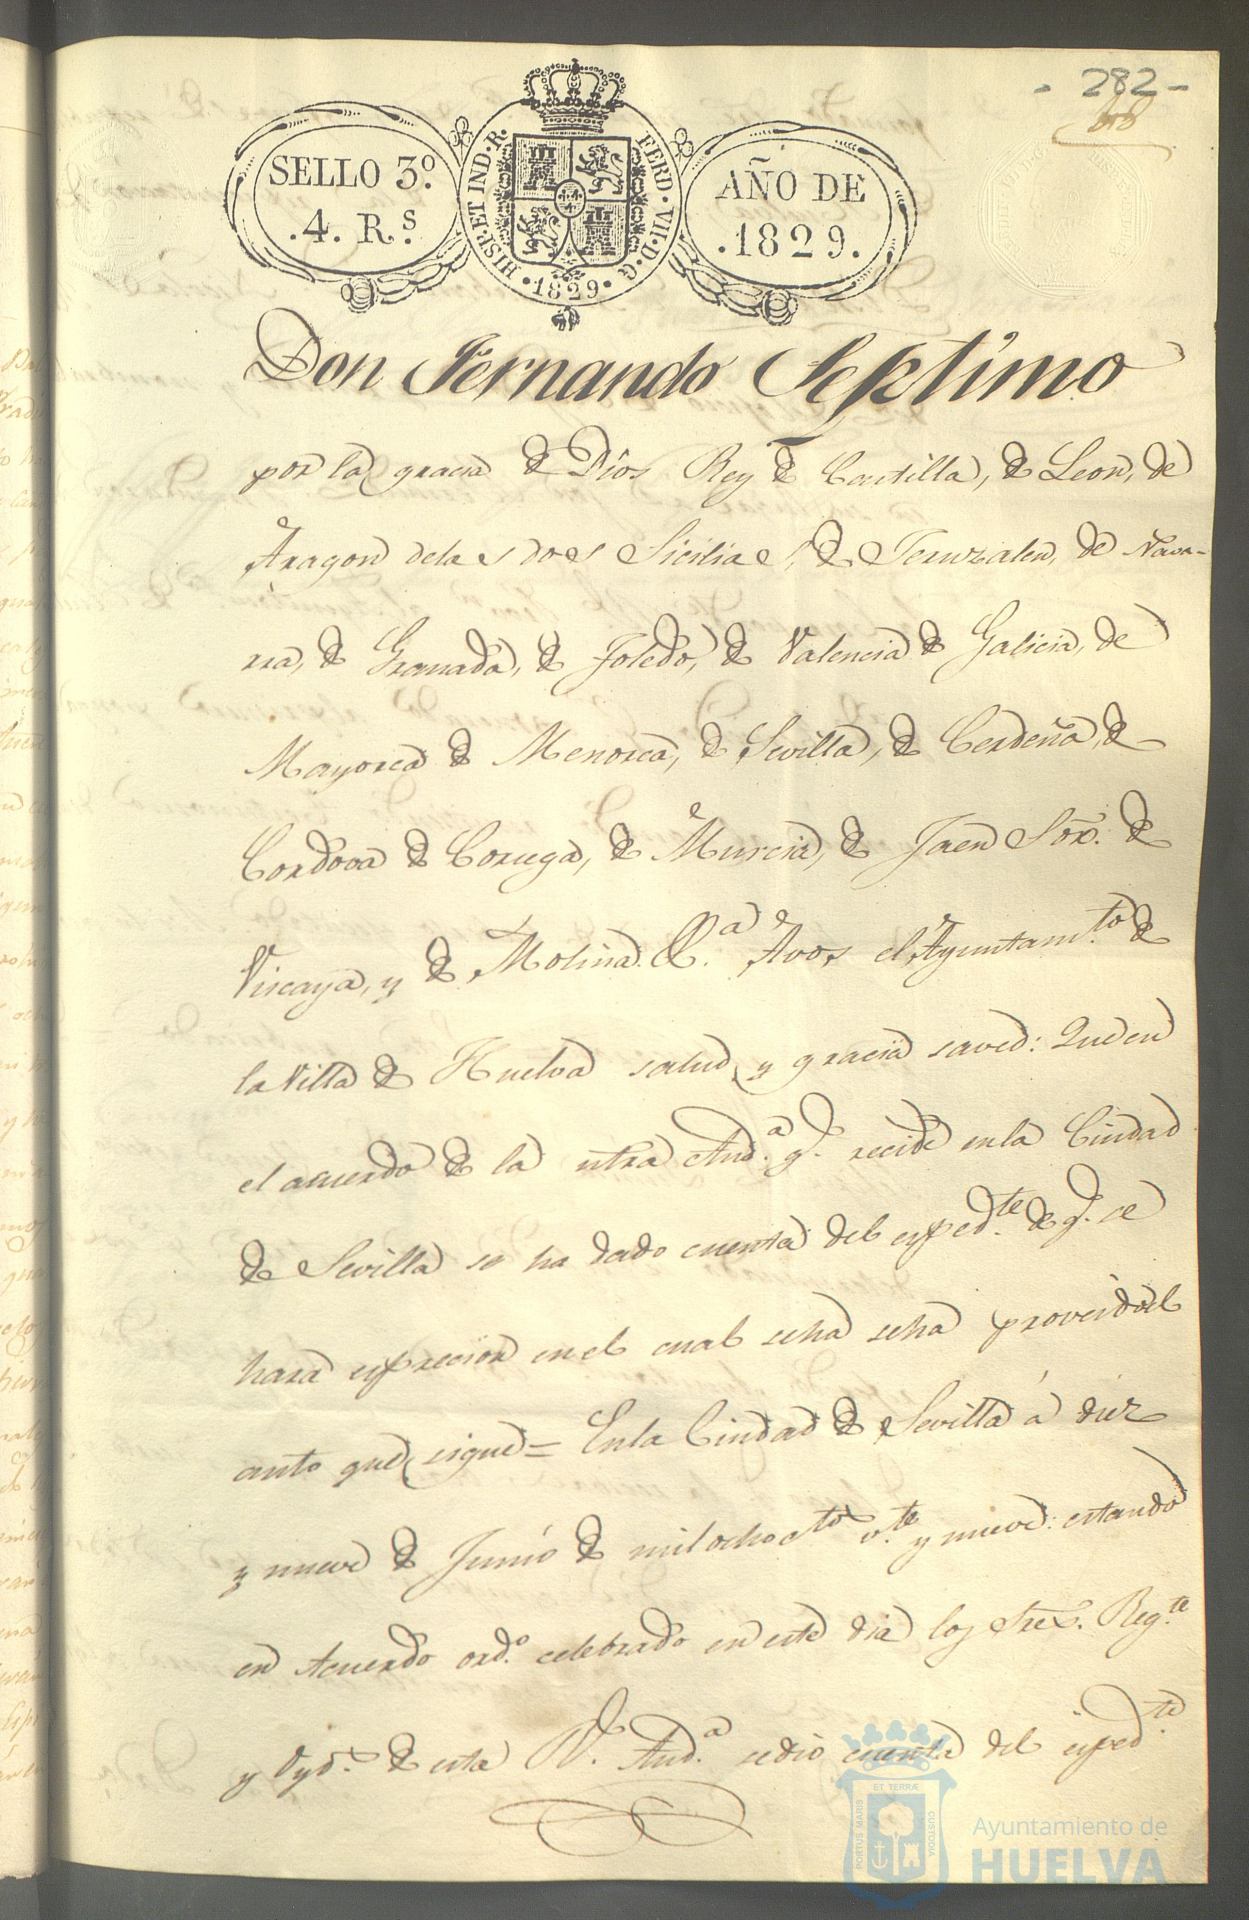 - 282 -
SELLO 3.º
4. R.s
HISP. ET IND. R.
FERD. VII. D. G.
1829
AÑO DE
1829.
Don Fernando Septimo
por la gracia de Dios Rey de Castilla, de Leon, de
Aragon delas dos Sicilias, de Jeruzalen, de Nava-
rra, de Granada, de Toledo, de Valencia de Galicia, de
Mayorca de Menorca, de Sevilla, de Cerdeña, de
Cordova de Corsega, de Murcia, de Jaen Sor. de
Viscaya, y de Molina &.a Avos el Ayuntam.to de
la Villa de Huelva salud y gracia saved: Que en
el acuerdo de la ntra Aud.a q.e recide en la Ciudad
de Sevilla se ha dado cuenta del exped.te de q.e se
hara exprecion en el cual seha seha proveido el
auto que sigue = En la Ciudad de Sevilla á diez
y nueve de Junio de mil ochoc.tos v.te y nueve: estando
en Acuerdo ord.o celebrado en este dia los Sres. Reg.te
y Oyd.s de esta R.l Aud.a se dio cuenta del exped.te
PORTUS MARIS ET TERRÆ CUSTODIA
Ayuntamiento de
HUELVA